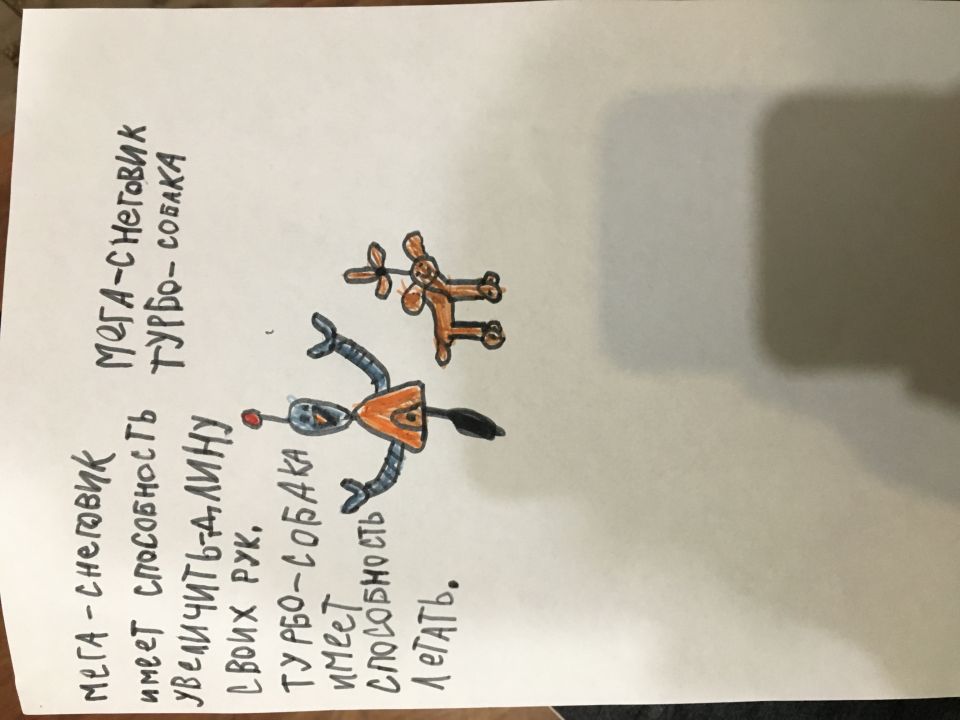 МЕГА-СНЕГОВИК
ИМЕЕТ СПОСОБНОСТЬ
УВЕЛИЧИТЬ ДЛИНУ
СВОИХ РУК.
ТУРБО-СОБАКА
ИМЕЕТ
СПОСОБНОСТЬ
ЛЕТАТЬ.
МЕГА-СНЕГОВИК
ТУРБО-СОБАКА